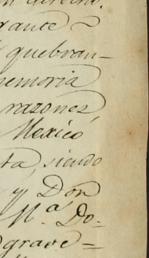 rante
quebran-
memoria
razones,
Mexico
ta siendo
y Don
M.ª Do-
grave=